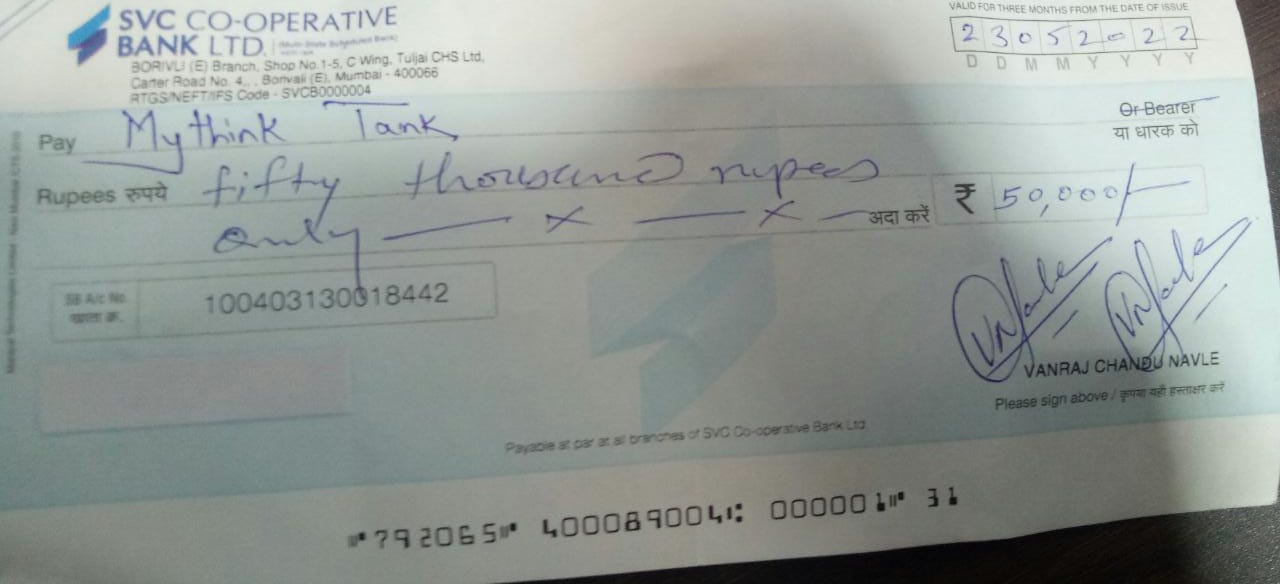 SVC CO-OPERATIVE
BANK LTD. (Multi-State Scheduled Bank)
BORIVLI (E) Branch, Shop No.1-5, C Wing, Tuljai CHS Ltd,
Carter Road No. 4,, Borivali (E), Mumbai - 400066
RTGS/NEFT/IFS Code - SVCB0000004
VALID FOR THREE MONTHS FROM THE DATE OF ISSUE
2 3 0 5 2 0 2 2
D D M M Y Y Y Y
Pay Mythink Tank
Or Bearer
या धारक को
Rupees रुपये fifty thousand rupees
only — x — x — अदा करें ₹ 50,000/-
SB A/c No. 100403130018442
खाता क्र.
VANRAJ CHANDU NAVLE
Please sign above / कृपया यहाँ हस्ताक्षर करें
Payable at par at all branches of SVC Co-operative Bank Ltd.
⑈792065⑈ 400089004⑆ 000001⑈ 31